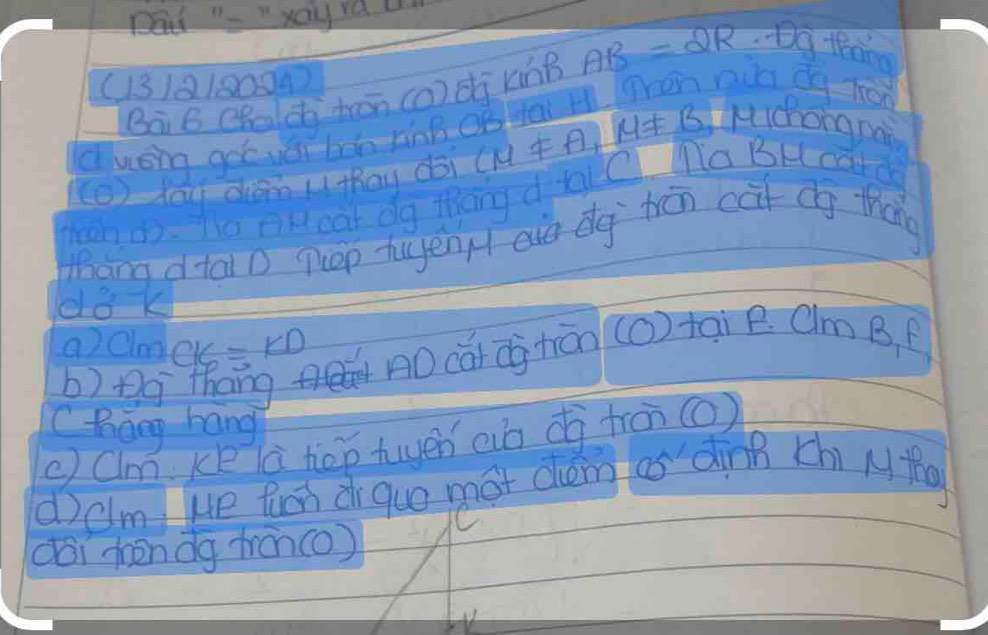 Dấu "=" xảy ra
(13/2/2024)
Bài 6 Cho đg tròn (O) đg kính AB = 2R. Đg thẳng
d vuông góc với bán kính OB tại H. Trên nửa đg tròn
(O) lấy điểm M thay đổi (M ≠ A, M ≠ B, M không nằm
trên d). Tia AM cắt đg thẳng d tại C. Tia BM cắt đg
thẳng d tại D Tiếp tuyến M của đg tròn cắt đg thẳng
d ở K
a) Cm CK = KD
b) Đg thẳng AD cắt đg tròn (O) tại E. Cm B, E,
C thẳng hàng
c) Cm: KE là tiếp tuyến của đg tròn (O)
d) Cm: ME luôn đi qua một điểm cố định khi M thay
đổi trên đg tròn (O)
C
K